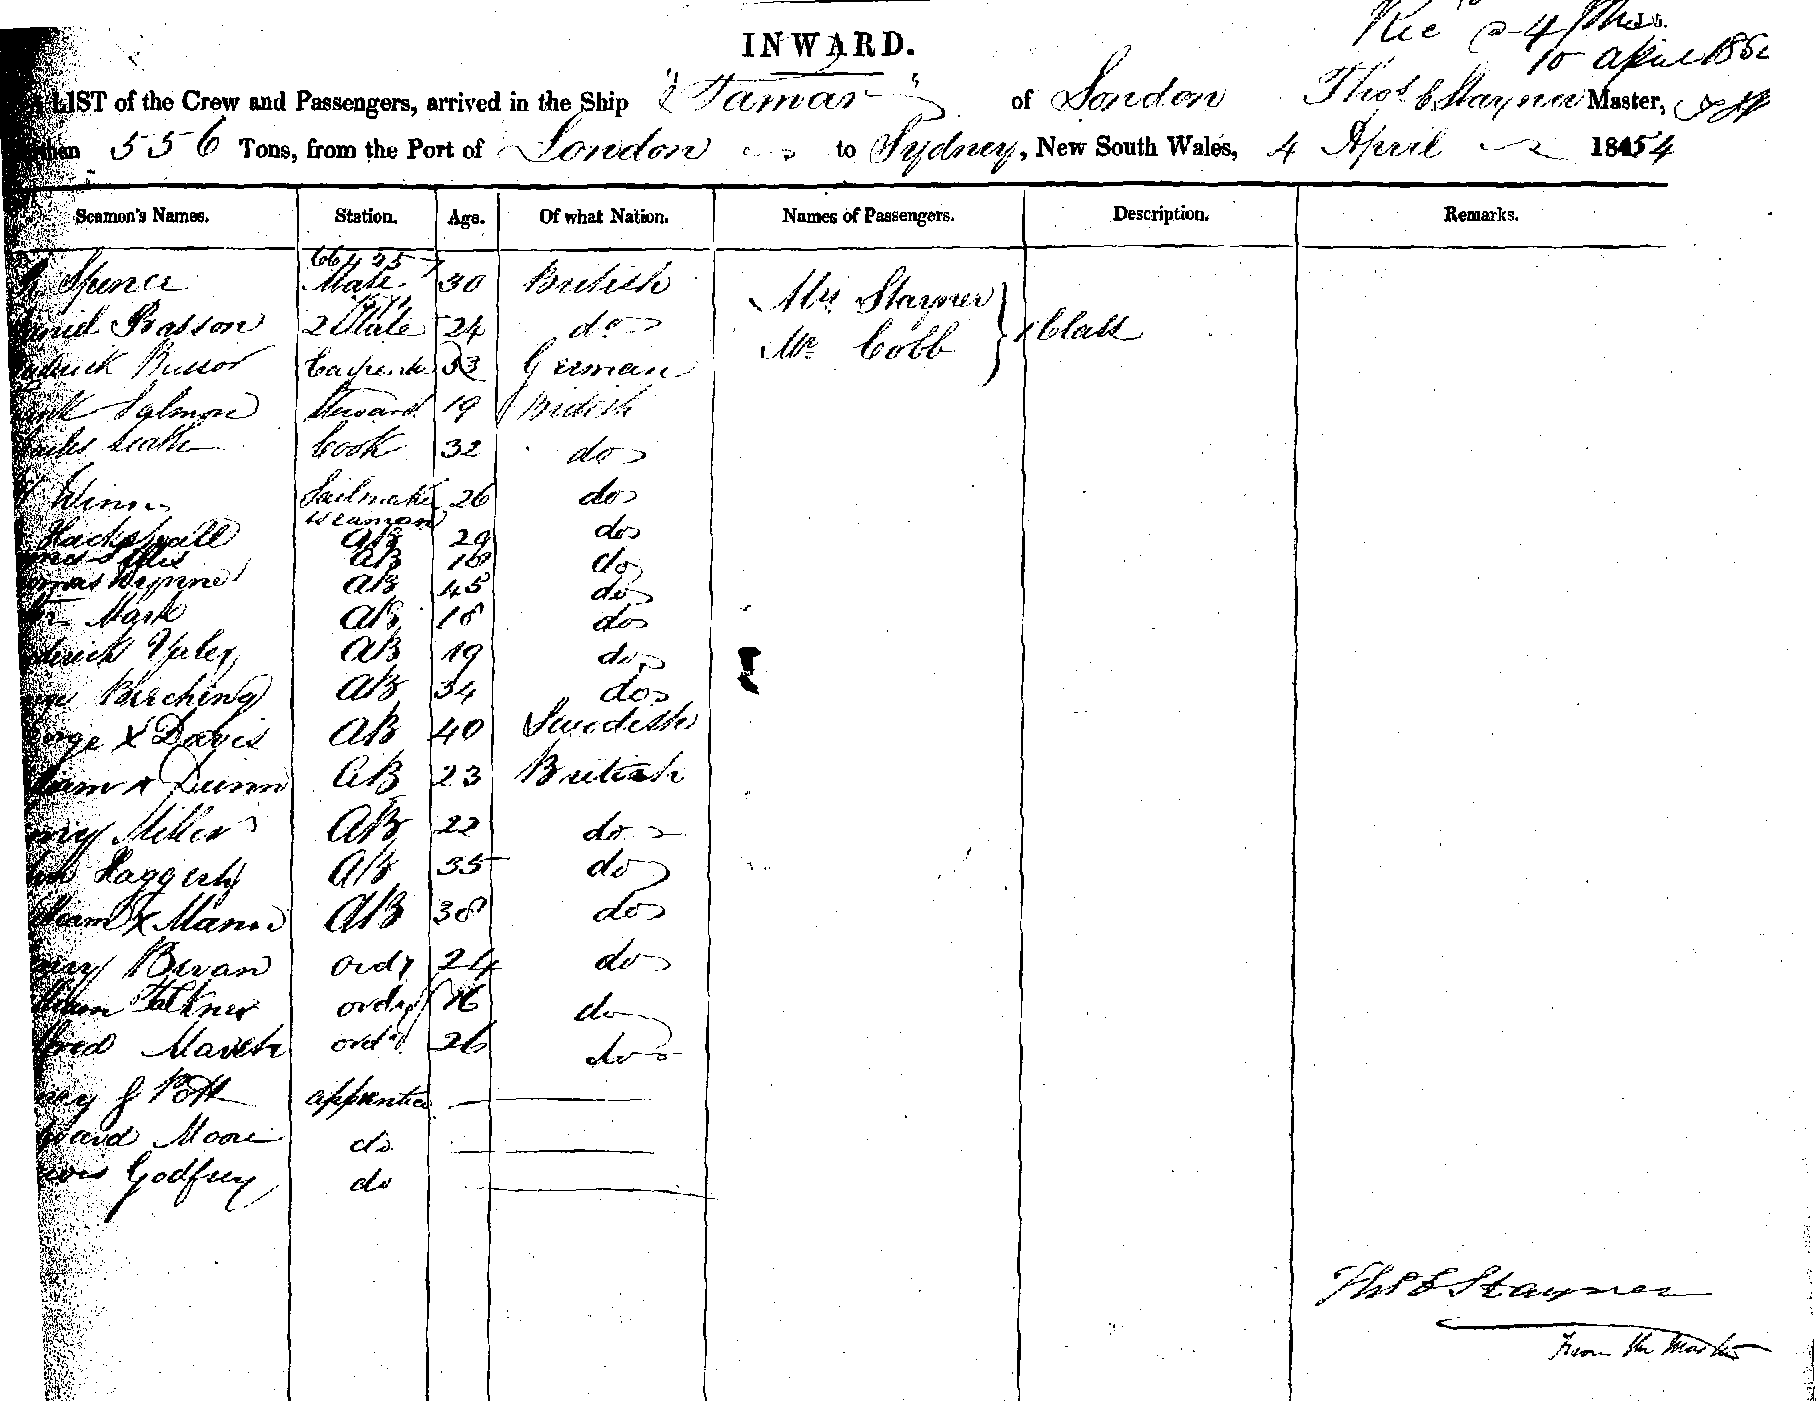 INWARD.
Rec
10 April
LIST of the Crew and Passengers, arrived in the Ship "Tamar" of London Thos E Stayner Master,
556 Tons, from the Port of London to Sydney, New South Wales, 4 April 1854
Seamen's Names. Station. Age. Of what Nation. Names of Passengers. Description. Remarks.
Spence Mate 30 British Mrs Stayner
2 Mate 24 do Mr Cobb Class
Carpenter 33 German
Salmon Steward 19 British
Cook 32 do
Winn Sailmaker 26 do
& seaman
AB 29 do
AB 18 do
AB 45 do
Mark AB 18 do
AB 19 do
Birching AB 34 do
X Davis AB 40 Swedish
x Dunn AB 23 British
Miller AB 22 do
Haggerty AB 35 do
X Mann AB 38 do
Bevan ordy 24 do
Falkner ordy 16 do
March ordy 26 do
J Pott apprentice
Moore do
Godfrey do
Thos E Stayner